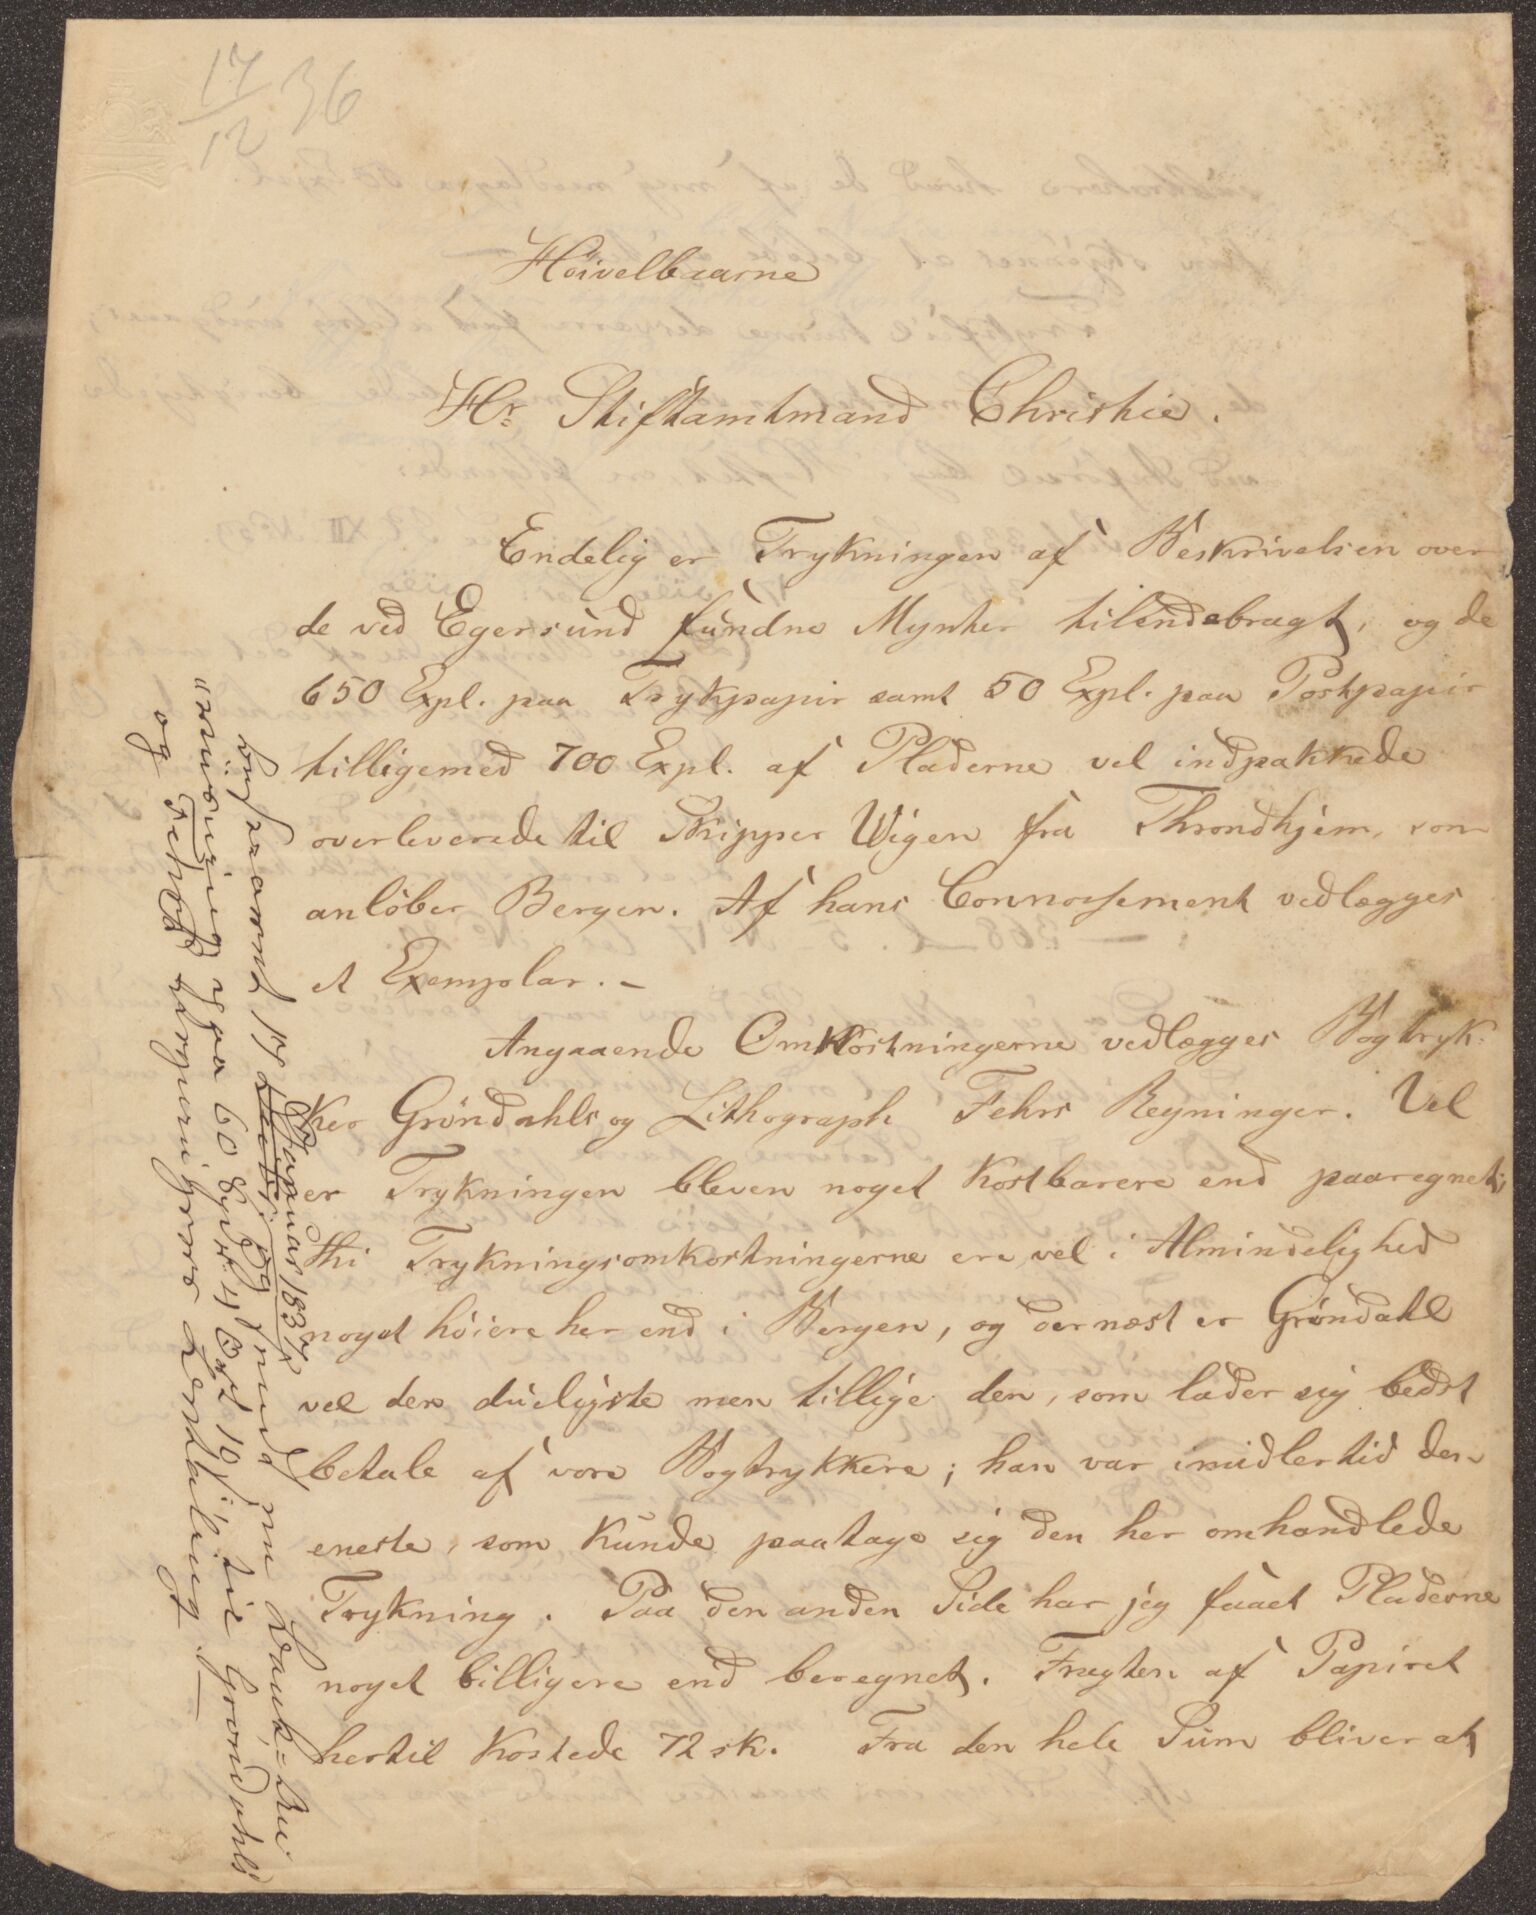 17/12 36
Høivelbaarne
Hr Stiftamtmand Christie.
Endelig er Trykningen af Beskrivelsen over
de ved Egersund fundne Mynter tilendebragt, og de
650 Expl. paa Trykpapir samt 50 Expl. paa Postpapir
tilligemed 700 Expl. af Pladerne vel indpakkede
overleverede til Skipper Wigen fra Throndhjem, som
anløber Bergen. Af hans Connossement vedlægges
et Exemplar. –
Angaaende Omkostningerne vedlægges Bogtryk-
ker Grøndahls og Lithograph Fehrs Regninger. Vel
er Trykningen bleven noget kostbarere end paaregnet;
thi Trykningsomkostningerne ere vel i Almindelighed
noget høiere her end i Bergen, og dernæst er Grøndahl
vel den dueligste men tillige den, som lader sig bedst
betale af vore Bogtrykkere; han var imidlertid den
eneste, som kunde paatage sig den her omhandlede
Trykning. Paa den anden Side har jeg faaet Pladerne
noget billigere end beregnet. Fragten af Papiret
hertil kostede 72 sk. Fra den hele Sum bliver at
Januar 1837
Besvaret 19 og sendt en Bank-
Anvisning paa 60 Spd. 4 Ort 19 s. til Grøndahls
og Fehrs Regningers Betaling. —